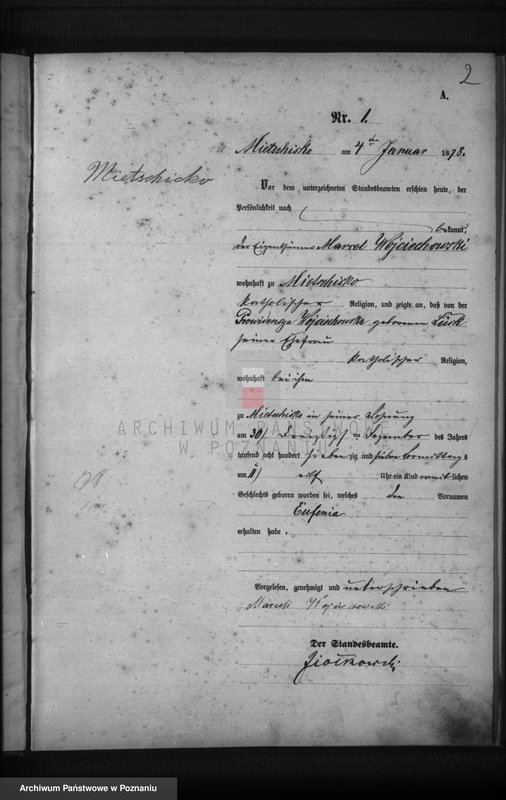 2
A.
Nr. 1.
Mietschisko am 4ten Januar 1878.
Mietschisko
Vor dem unterzeichneten Standesbeamten erschien heute, der
Persönlichkeit nach
bekannt,
der Eigenthümer Marcel Wojciechowski
wohnhaft zu Mietschisko
katholischer Religion, und zeigte an, daß von der
Wojciechowska geborenen Lück
seiner Ehefrau
katholischer Religion,
wohnhaft bei ihm
zu Mietschisko in seiner Wohnung
am 30/ dreißig/ ten Dezember des Jahres
tausend acht hundert siebenzig und sieben Vormittags
um 11/ eilf Uhr ein Kind weiblichen
Geschlechts geboren worden sei, welches den Vornamen
Eufenia
erhalten habe.
Vorgelesen, genehmigt und unterschrieben
Marceli Wojciechowski
Der Standesbeamte.
ARCHIWUM PAŃSTWOWE
W POZNANIU
Archiwum Państwowe w Poznaniu